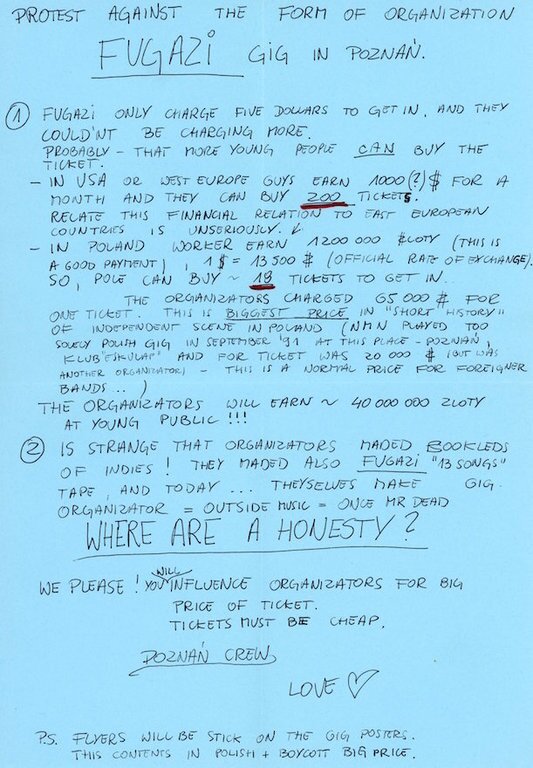 PROTEST AGAINST THE FORM OF ORGANIZATION
FUGAZI GIG IN POZNAŃ.
① FUGAZI ONLY CHARGE FIVE DOLLARS TO GET IN, AND THEY
COULD'NT BE CHARGING MORE.
PROBABLY - THAT MORE YOUNG PEOPLE CAN BUY THE
TICKET.
- IN USA OR WEST EUROPE GUYS EARN 1000(?)$ FOR A
MONTH AND THEY CAN BUY 200 TICKETS.
RELATE THIS FINANCIAL RELATION TO EAST EUROPEAN
COUNTRIES IS UNSERIOUSLY.
- IN POLAND WORKER EARN 1200 000 ZLOTY (THIS IS
A GOOD PAYMENT), 1$ = 13 500 $ (OFFICIAL RATE OF EXCHANGE).
SO, POLE CAN BUY ~ 18 TICKETS TO GET IN...
THE ORGANIZATORS CHARGED 65 000 $ FOR
ONE TICKET. THIS IS BIGGEST PRICE IN "SHORT HISTORY"
OF INDEPENDENT SCENE IN POLAND (NMN PLAYED TOO
SOLELY POLISH GIG IN SEPTEMBER '91 AT THIS PLACE - POZNAŃ,
KLUB "ESKULAP" AND FOR TICKET WAS 20 000 $ (BUT WAS
ANOTHER ORGANIZATOR) - THIS IS A NORMAL PRICE FOR FOREIGNER
BANDS...)
THE ORGANIZATORS WILL EARN ~ 40 000 000 ZLOTY
AT YOUNG PUBLIC !!!
② IS STRANGE THAT ORGANIZATORS MADED BOOKLEDS
OF INDIES! THEY MADED ALSO FUGAZI "13 SONGS"
TAPE, AND TODAY ... THEYSELVES MAKE GIG.
ORGANIZATOR = OUTSIDE MUSIC = ONCE MR DEAD
WHERE ARE A HONESTY?
WE PLEASE! YOU WILL INFLUENCE ORGANIZATORS FOR BIG
PRICE OF TICKET.
TICKETS MUST BE CHEAP.
POZNAŃ CREW
LOVE ♡
P.S. FLYERS WILL BE STICK ON THE GIG POSTERS.
THIS CONTENTS IN POLISH + BOYCOTT BIG PRICE.